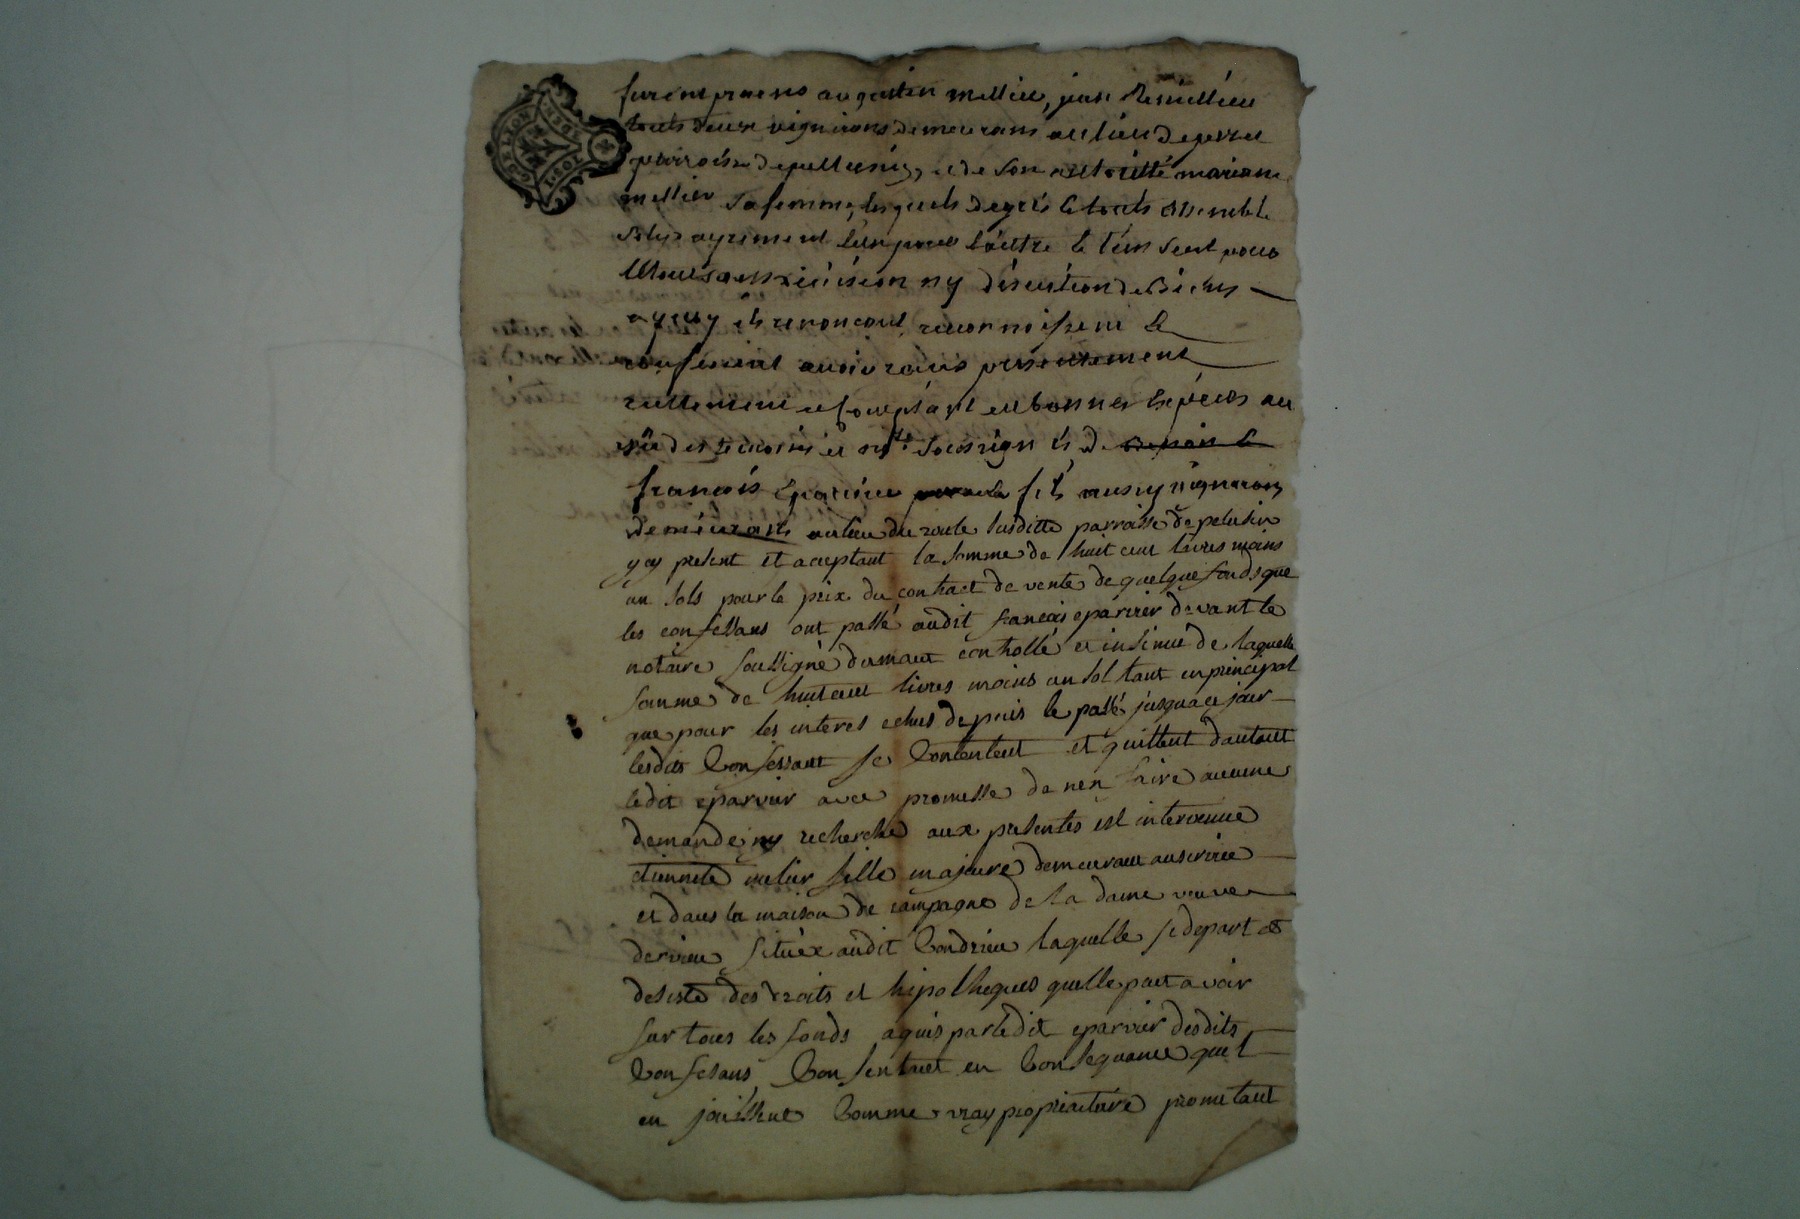 furent presens augustin mellier, jean remellieu
touts deux vignerons demeurans au lieu de
parroisse de pellusin, et de son authoritté mariane
mellier sa femme, lesquels de gré touts ensemble
solidayrement l'un pour l'autre le sent pour
le tout sans division ny discution de biens
a quoy ils renoncent, reconnoissent &
confessent avoir reçus presentement
reellement et comptant en bonnes espèces au
vû des temoins et nre soussigné d
françois eparvier fils aussy vigneron
demeurans au lieu du route susditte parroisse de pelusin
y cy present et aceptant la somme de huit cent livres moins
un sols pour le prix du contract de vente de quelque fonds que
les confessans ont passé audit françois eparvier devant le
notaire soussigné dument controllé et insinué de laquelle
somme de huit cent livres moins un sol tant en principal
que pour les interes echus depuis le passé jusqua ce jour
lesdits Confessant se Contentent et quittent dautant
ledit eparvier avec promesse de nen faire aucune
demande ny recherche aux presentes est intervenue
etiennete melier fille majeure demeurant au service
et dans la maison de campagne de la dame veuve
dervieu située audit Condrieu laquelle se depart et
desiste des droits et hipotheques quelle peut avoir
sur tous les fonds aquis par ledit eparvier desdits
Confesans, Consentant en Consequance quil
en jouissent Comme vray propriaitaire prometant